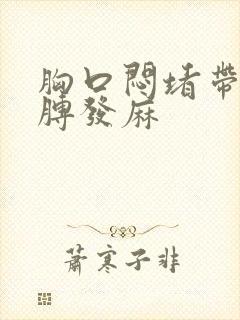 胸口悶堵帶
膊發麻
蕭寒子非